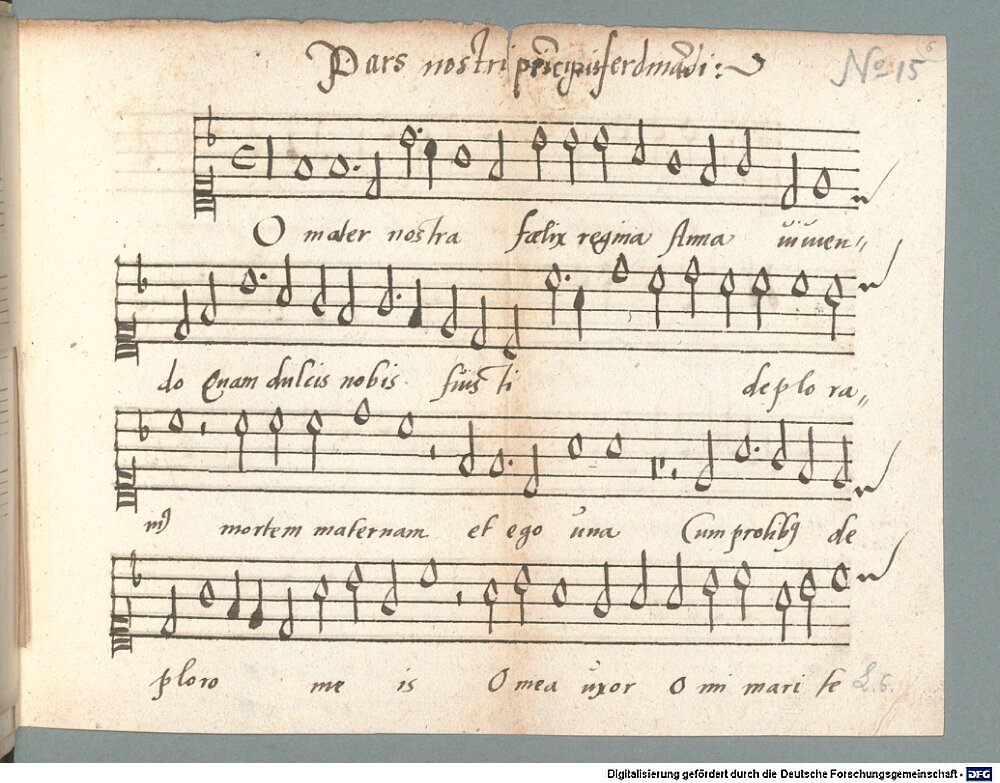 Pars nostri pricipis ferdinādi:
No 15
6
O mater nostra fælix regina Anna viuen„
do Quam dulcis nobis fuisti deplora„
mortem maternam et ego una Cum prolibꝫ de
ploro me is O mea uxor O mi mari te
L.6.
Digitalisierung gefördert durch die Deutsche Forschungsgemeinschaft - DFG